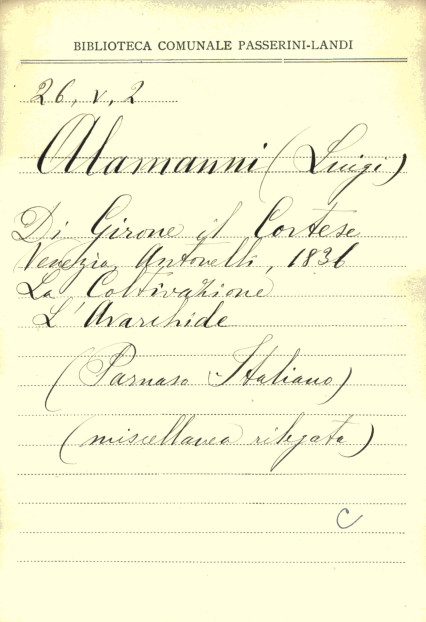 BIBLIOTECA COMUNALE PASSERINI-LANDI
26, V, 2
Alamanni (Luigi)
Di Girone il Cortese
Venezia, Antonelli, 1836
La Coltivazione
L'Avarchide
(Parnaso Italiano)
(miscellanea rilegata)
C